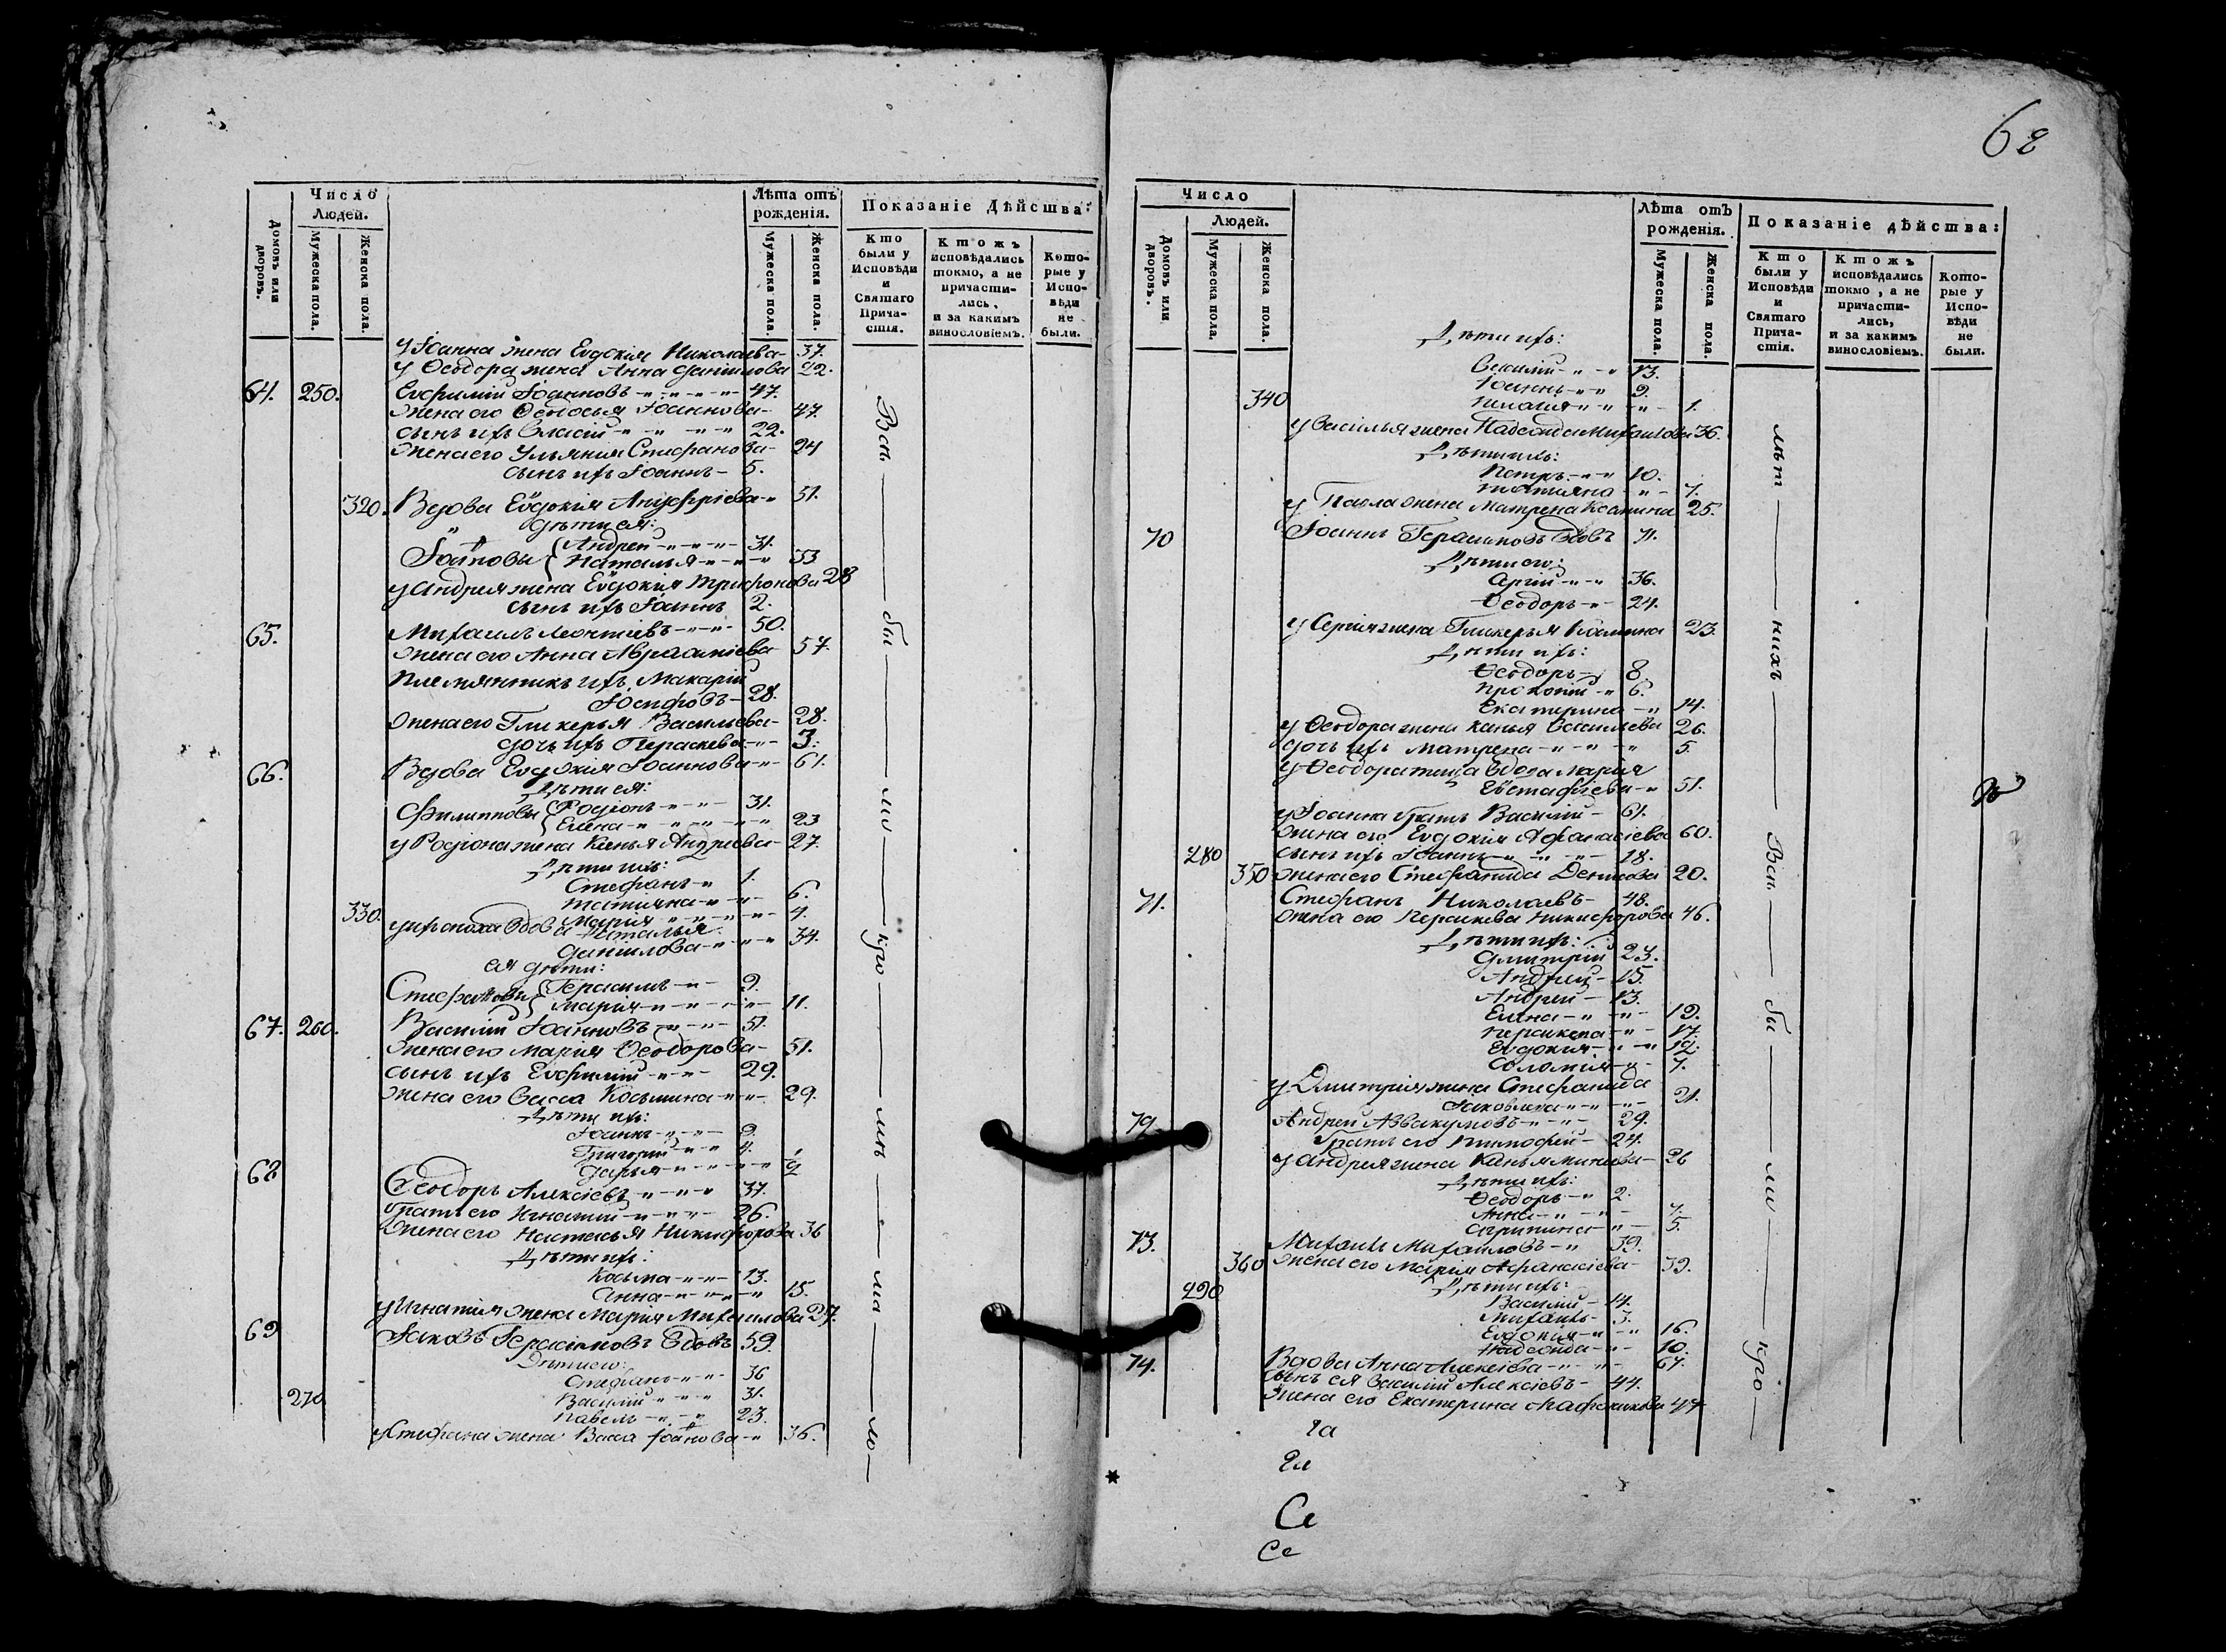 Число
Людей.
Домовъ или дворовъ.
Мужеска пола.
Женска пола.
Лѣта отъ рожденія.
Мужеска пола.
Женска пола.
Показаніе Дѣйства:
Кто были у Исповѣди и Святаго Причастія.
Ктожъ исповѣдались токмо, а не причастились, и за какимъ винословіемъ.
Которые у Исповѣди не были.
у Іоанна жена Евдокія Николаева - 37.
у Ѳеодора жена Анна Даніилова 22.
64. 250. Евфимій Іоанновъ 47.
жена его Ѳеодосья Іоаннова - 47.
сынъ ихъ Власій 22.
жена его Ульяния Стефанова - 24
сынъ ихъ Іоаннъ - 5.
320. Вдова Евдокія Ануфріева 51.
дѣти ея:
Іоановы Андрей 31.
Наталья 33
у Андрея жена Евдокія Трифонова 28
сынъ ихъ Іоаннъ 2.
65. Михаилъ Леонтіевъ 50.
жена его Анна Аврааміева 57.
племянникъ ихъ Макарій
Іосифовъ - 28.
жена его Гликерья Васильева - 28.
дочь ихъ Параскева 3.
66. Вдова Евдокія Іоаннова 61.
дѣти ея:
Филипповы Родіонъ 31.
Елена 23
у Родіона жена Ксенья Андреева - 27.
дѣти ихъ:
Стефанъ 1.
Татияна 6.
330. Марія 4.
у ихъ сноха вдова Наталья
Даніилова 34.
ея дѣти:
Стефановы Герасимъ 9.
Марія 11.
67. 260. Василій Іоанновъ 51.
жена его Марія Ѳеодорова - 51.
сынъ ихъ Евфимій 29.
жена его Васса Косьмина 29.
дѣти ихъ:
Іоаннъ 9.
Григорій 4.
Дарья 9
68 Ѳеодоръ Алексіевъ 37.
братъ его Игнатій 26.
жена его Настасья Никифорова 36
дѣти ихъ:
Косьма 13.
Анна 15.
у Игнатія жена Марія Михаилова 27.
69 Іаковъ Герасимовъ вдовъ 59.
Дѣти его:
Стефанъ 36
270 Василій 31.
Павелъ 23.
у Стефана жена Васса Іоанова 36.
Всѣ — бы — ли — кро — мѣ — ма — ло —
68
Число
Людей.
Домовъ или дворовъ.
Мужеска пола.
Женска пола.
Лѣта отъ рожденія.
Мужеска пола.
Женска пола.
Показаніе дѣйства:
Кто были у Исповѣди и Святаго Причастія.
Ктожъ исповѣдались токмо, а не причастились, и за какимъ винословіемъ.
Которые у Исповѣди не были.
Дѣти ихъ:
Василій 13.
Іоаннъ 9.
340 Пелагія 1.
у Василья жена Надежда Михаилова 36.
Дѣти ихъ:
Петръ 10.
Татияна 7.
у Павла жена Матрена Космина 25.
70 Іоаннъ Герасимовъ вдовъ 71.
Дѣти его:
Сергій 36.
Ѳеодоръ 24.
у Сергія жена Гликерья Космина 23.
Дѣти ихъ:
Ѳеодоръ 8.
Прокопій 6.
Екатерина 14.
у Ѳеодора жена Ксенья Васильева 26.
дочь ихъ Матрена 5.
у Ѳеодора теща вдова Марія
Евстафіева 51.
у Іоанна братъ Василій - 61.
жена его Евдокія Афанасіева 60.
280 сынъ ихъ Іоаннъ 18.
350 жена его Стефанида Денисова 20.
71. Стефанъ Николаевъ - 48.
жена его Параскева Никифорова 46.
Дѣти ихъ:
Димитрій 23.
Андрей - 15.
Андрей - 13.
Елена 19.
Параскева 17.
Евдокія 12.
Соломія 7.
у Димитрія жена Стефанида
Іаковлева 21.
72. Андрей Аввакумовъ 29.
братъ его Тимофей - 24.
у Андрея жена Ксенья 26
Дѣти ихъ:
Ѳеодоръ 2.
Анна 7.
Агрипина 5.
73. Михаилъ Михаиловъ 39.
360 жена его Марія Афанасіева - 39.
Дѣти ихъ:
290 Василій - 14.
Михаилъ - 3.
Евдокія 16.
Надежда 10.
74. Вдова Анна Алексіева 67.
сынъ ея Василій Алексіевъ - 44.
жена его Екатерина 47
лѣт — нихъ — Всѣ — бы — ли — кро —